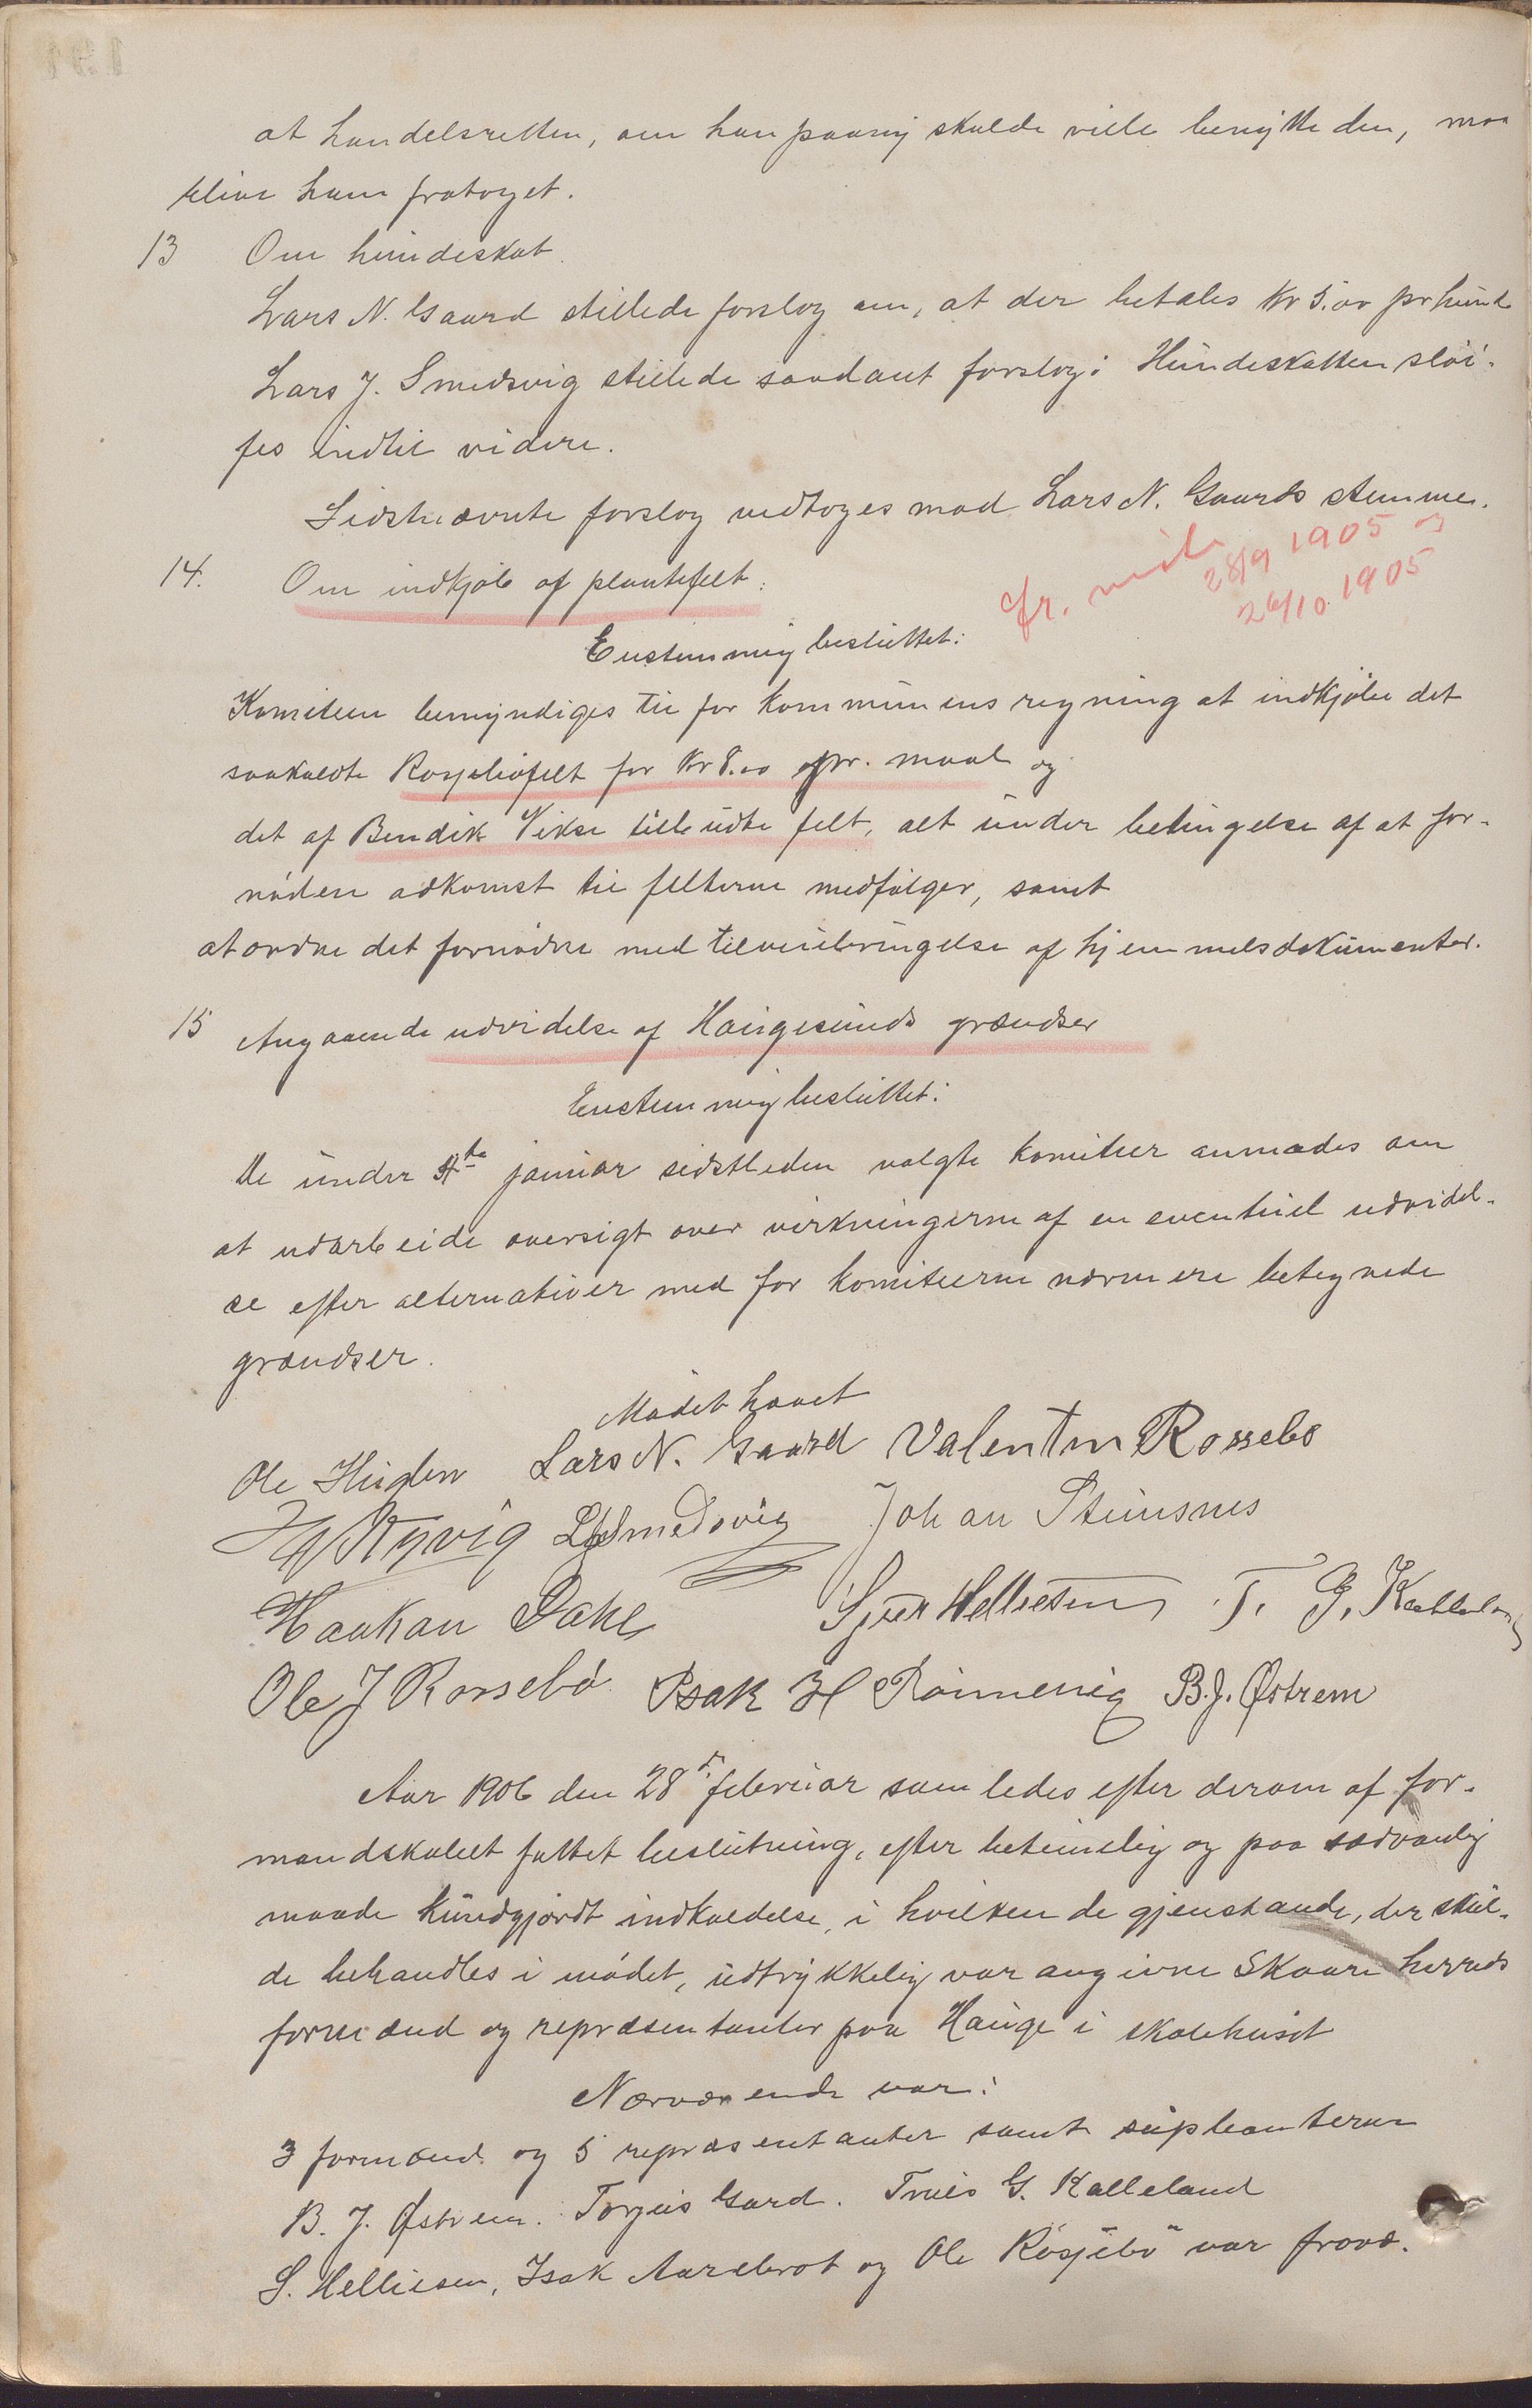 at handelsretten, om han paany skulde ville benytte den, maa
blive ham fratoget.
13 Om hundeskat.
Lars N. Gaard stillede forslog om, at der betales Kr 5.00 pr hund
Lars J. Smedsvig stillede saadant forslog: Hundeskatten sløi-
fes indtil videre.
Sidstnævnte forslog vedtoges mod Lars N. Gaards stemme.
14. Om indkjøb af plantefelt:
Cfr. møde 28/9 1905 og
26/10 1905
Enstemmig besluttet:
Komiteen bemyndiges til for kommunens regning at indkjøbe det
saakaldte Rosseliøfelt for Kr 8.00 pr. maal og
det af Bendik Vikse tilbudte felt, alt under betingelse af at for-
nøden adkomst til felterne medfølger, samt
at ordne det fornødne med tilveiebringelse af hjemmelsdokumenter.
15 Angaaende udvidelse af Haugesunds grændser
Enstemmig besluttet:
De under 4de januar sidstleden valgte komiteer anmodes om
at udarbeide oversigt over virkningerne af en eventuel udvidel-
se efter alternativer med for komiteerne nærmere betegnede
grændser.
Mødet hævet
Ole Huglen Lars N. Gaard Valentin Rossebø
Kyvig LJSmedsvig Johan Stensnes
Haakan Dahl Sjur Helliesen T. G. Kalleland
Ole J Rossebø Isak H Rømmenig B.J. Østrem
Aar 1906 den 28de februar samledes efter derom af for-
mandskabet fattet beslutning, efter betimelig og paa sædvanlig
maade kundgjordt indkaldelse, i hvilken de gjenstande, der skul-
de behandles i mødet, udtrykkelig var angivne Skaare herreds
formænd og repræsentanter paa Hauge i skolehuset
Nærværende var:
3 formænd og 5 repræsentanter samt supleanterne
B. J. Østrem. Torjeis Gard. Truls G. Kalleland
S. Helliesen, Isak Aarebrot og Ole Rossebø var fravæ-